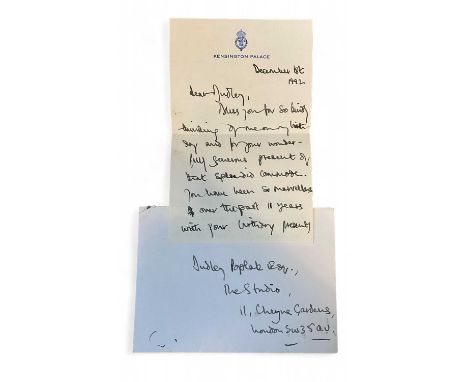 KENSINGTON PALACE
December 1st
1992.
dear Dudley,
Bless you for so kindly
thinking of me on my birth
day and for your wonder-
fully generous present of
that splendid commode.
You have been so marvellous
over the past 11 years
with your birthday presents
Dudley Poplak Esq.,
The Studio,
11, Cheyne Gardens,
London SW3 5QU.